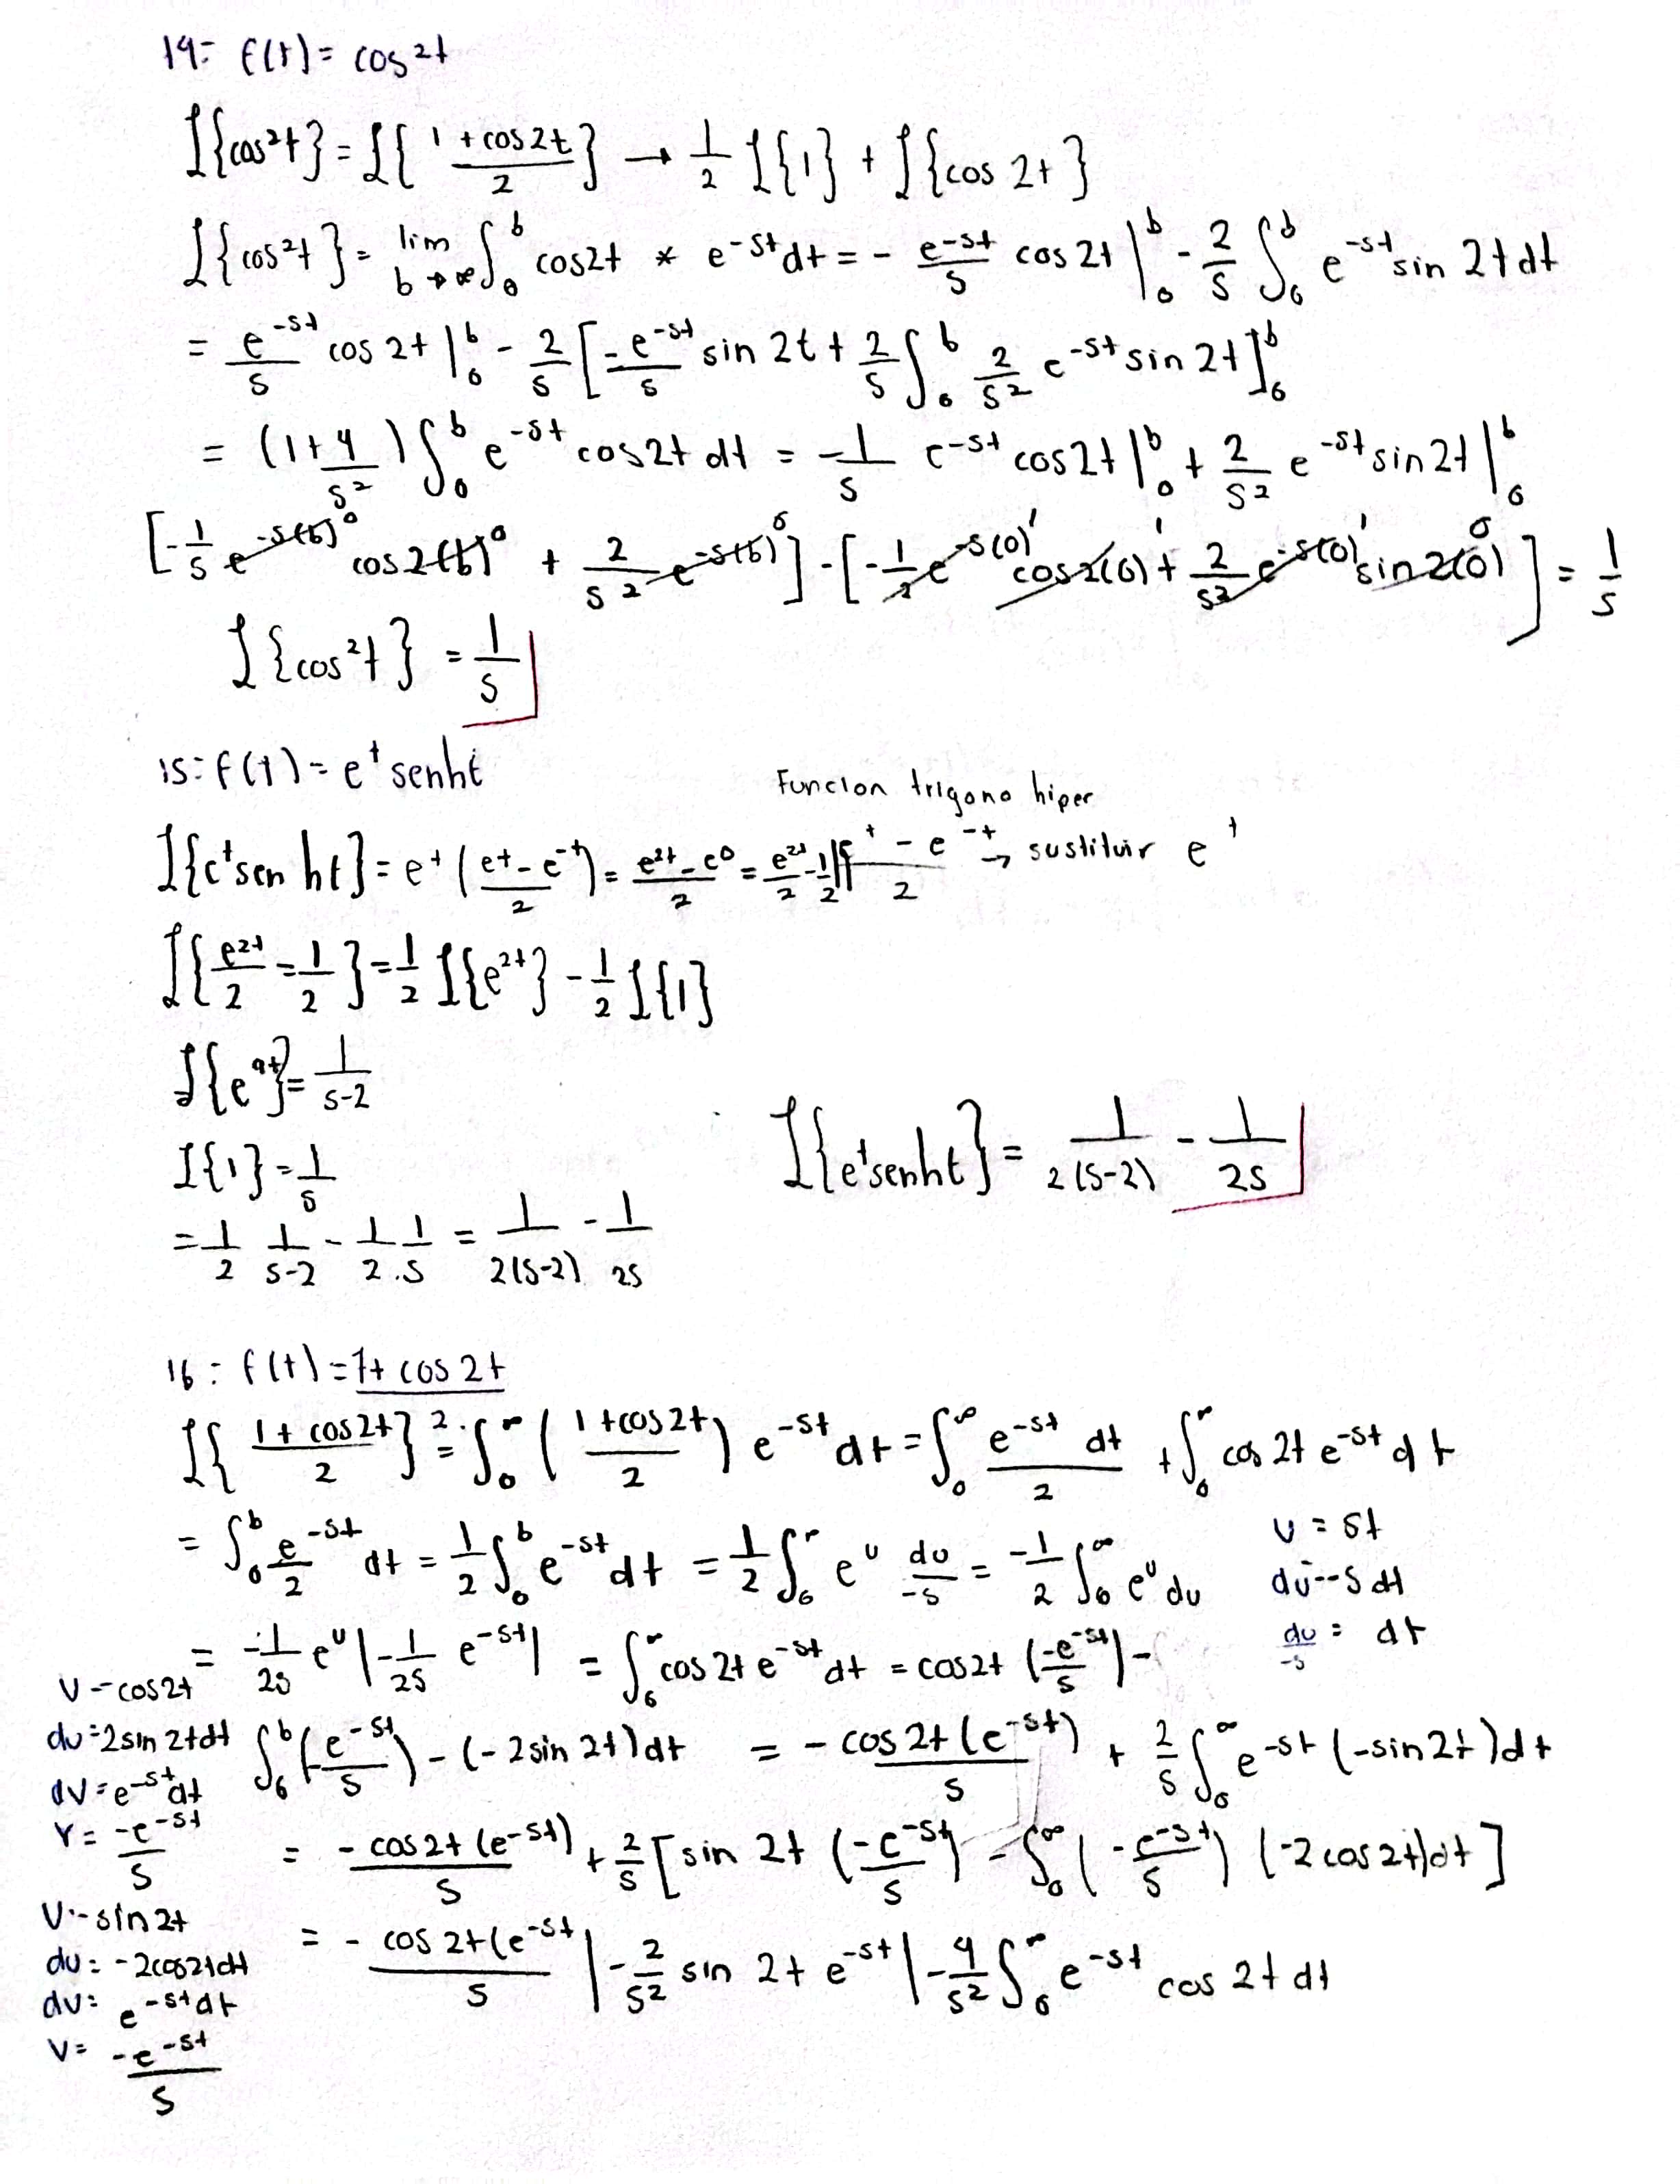 14: f(t) = cos²t
ℒ{cos²t} = ℒ{1 + cos 2t / 2} → 1/2 ℒ{1} + ℒ{cos 2t}
ℒ{cos²t} = lim b→∞ ∫₀ᵇ cos2t * e^-st dt = - e^-st/s cos 2t |₀ᵇ - 2/s ∫₀ᵇ e^-st sin 2t dt
= e^-st/s cos 2t |₀ᵇ - 2/s [- e^-st/s sin 2t + 2/s ∫₀ᵇ 2/s² e^-st sin 2t]₀ᵇ
= (1 + 4/s²) ∫₀ᵇ e^-st cos2t dt = -1/s e^-st cos2t |₀ᵇ + 2/s² e^-st sin 2t |₀ᵇ
[-1/s e^-s(b) 0 cos2(b) 0 + 2/s² e^-s(b) 0] - [-1/2 e^-s(0) 1 cos2(0) 1 + 2/s² e^-s(0) 1 sin2(0) 0] = 1/s
ℒ{cos²t} = 1/s
15: f(t) = e^t senht
Funcion trigono hiper
ℒ{e^t sen ht} = e^t (e^t - e^-t / 2) = e^2t - e^0 / 2 = e^2t/2 - 1/2 || e^t - e^-t / 2 → sustituir e^t
ℒ{e^2t/2 = 1/2} = 1/2 ℒ{e^2t} - 1/2 ℒ{1}
ℒ{e^at} = 1/s-2
ℒ{1} = 1/s
= 1/2 1/s-2 - 1/2 . 1/s = 1/2(s-2) - 1/2s
ℒ{e^t senht} = 1/2(s-2) - 1/2s
16: f(t) = 1+ cos 2t / 2
ℒ{1 + cos2t / 2} = ∫₀^∞ (1 + cos2t / 2) e^-st dt = ∫₀^∞ e^-st dt / 2 + ∫₀^∞ cos 2t e^-st dt
= ∫₀ᵇ e^-st/2 dt = 1/2 ∫₀ᵇ e^-st dt = 1/2 ∫₀^∞ e^u du/-s = -1/2 ∫₀^∞ e^u du
u = st
du = -s dt
du/-s = dt
= -1/2s e^u | -1/2s e^-st | = ∫₀^∞ cos 2t e^-st dt = cos2t (-e^-st/s) -
u = cos2t
du = 2sin 2t dt
dv = e^-st dt
v = -e^-st/s
∫₀ᵇ (-e^-st/s) - (-2sin 2t) dt = - cos 2t (e^-st)/s + 2/s ∫₀^∞ e^-st (-sin2t) dt
= - cos 2t (e^-st)/s + 2/s [sin 2t (-e^-st/s) - ∫₀^∞ (-e^-st/s) (-2cos2t) dt]
u = -sin 2t
du = -2cos2t dt
dv = e^-st dt
v = -e^-st/s
= - cos 2t (e^-st/s | - 2/s² sin 2t e^-st | - 4/s² ∫₀^∞ e^-st cos 2t dt